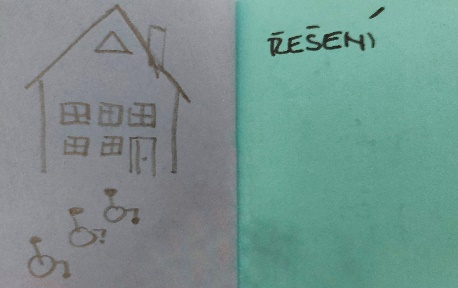 ŘEŠENÍ